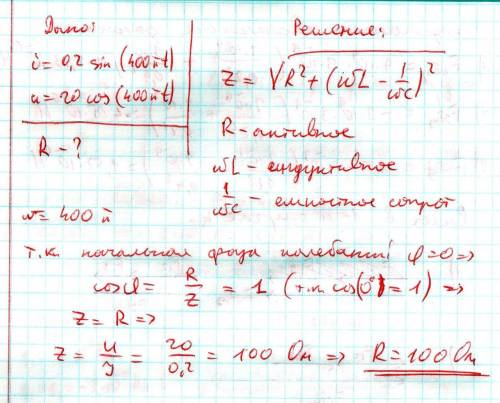 Дано:
i = 0,2 sin (400πt)
u = 20 cos (400πt)
R - ?
Решение:
Z = √R² + (ωL - 1/ωC)²
R - активное
ωL - индуктивное
1/ωC - емкостное сопрот
ω = 400 π
т.к. начальная фаза колебаний φ=0 =>
cosφ = R/Z = 1 (т.к. cos(0°) = 1) =>
Z = R =>
Z = U/I = 20/0,2 = 100 Ом => R = 100 Ом